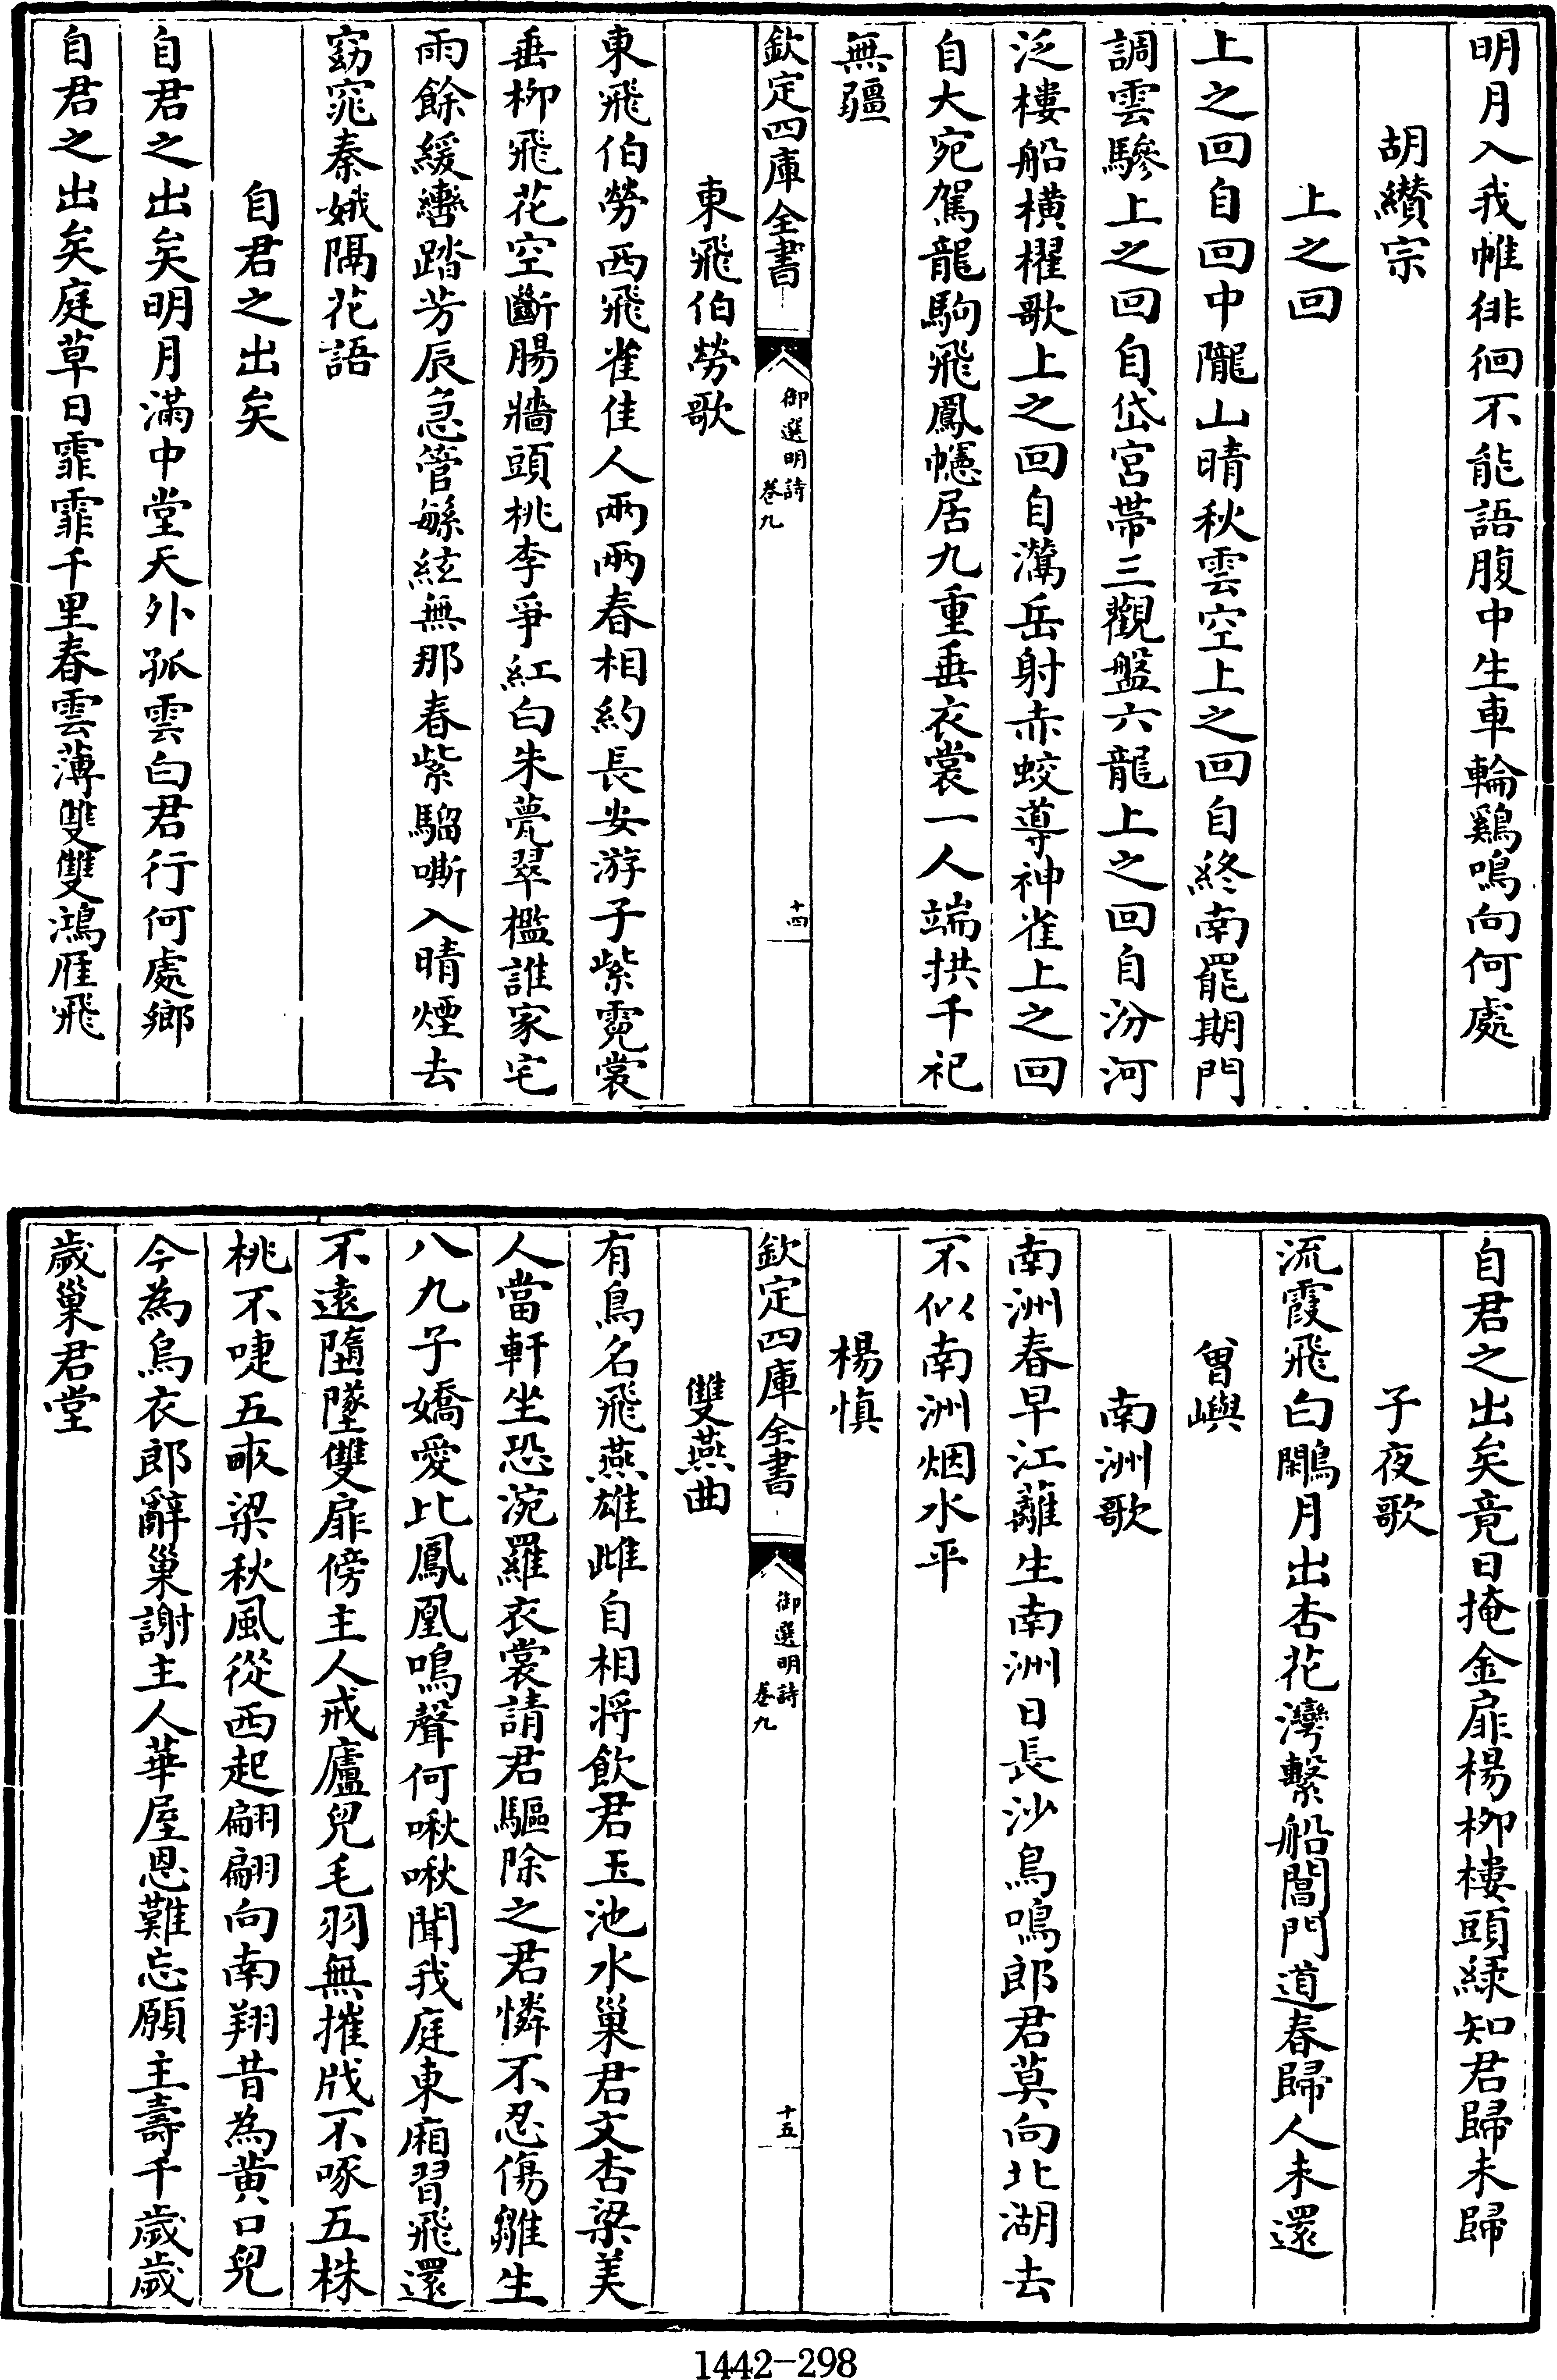 明月入我帷徘徊不能語腹中生車輪鷄鳴向何處
胡纘宗
上之回
上之回自回中隴山晴秋雲空上之回自終南罷期門
調雲驂上之回自岱宮帶三觀盤六龍上之回自汾河
泛樓船橫櫂歌上之回自灊岳射赤蛟導神雀上之回
自大宛駕龍駒飛鳳幰居九重垂衣裳一人端拱千祀
無疆
欽定四庫全書
御選明詩
卷九
十四
東飛伯勞歌
東飛伯勞西飛雀佳人兩兩春相約長安游子紫霓裳
垂柳飛花空斷腸牆頭桃李爭紅白朱甍翠檻誰家宅
雨餘緩轡踏芳辰急管繇絃無那春紫騮嘶入晴煙去
窈窕秦娥隔花語
自君之出矣
自君之出矣明月滿中堂天外孤雲白君行何處鄉
自君之出矣庭草日霏霏千里春雲薄雙雙鴻雁飛
自君之出矣竟日掩金扉楊柳樓頭綠知君歸未歸
子夜歌
流霞飛白鷴月出杏花灣繫船閶門道春歸人未還
曾嶼
南洲歌
南洲春早江蘺生南洲日長沙鳥鳴郎君莫向北湖去
不似南洲烟水平
楊慎
欽定四庫全書
御選明詩
卷九
十五
雙燕曲
有鳥名飛燕雄雌自相將飲君玉池水巢君文杏梁美
人當軒坐恐涴羅衣裳請君驅除之君憐不忍傷雛生
八九子嬌愛比鳳凰鳴聲何啾啾聞我庭東廂習飛還
不遠墮墜雙扉傍主人戒廬兒毛羽無摧戕不啄五株
桃不啑五畝梁秋風從西起翩翩向南翔昔為黃口兒
今為烏衣郎辭巢謝主人華屋恩難忘願主壽千歲歲
歲巢君堂
1442-298